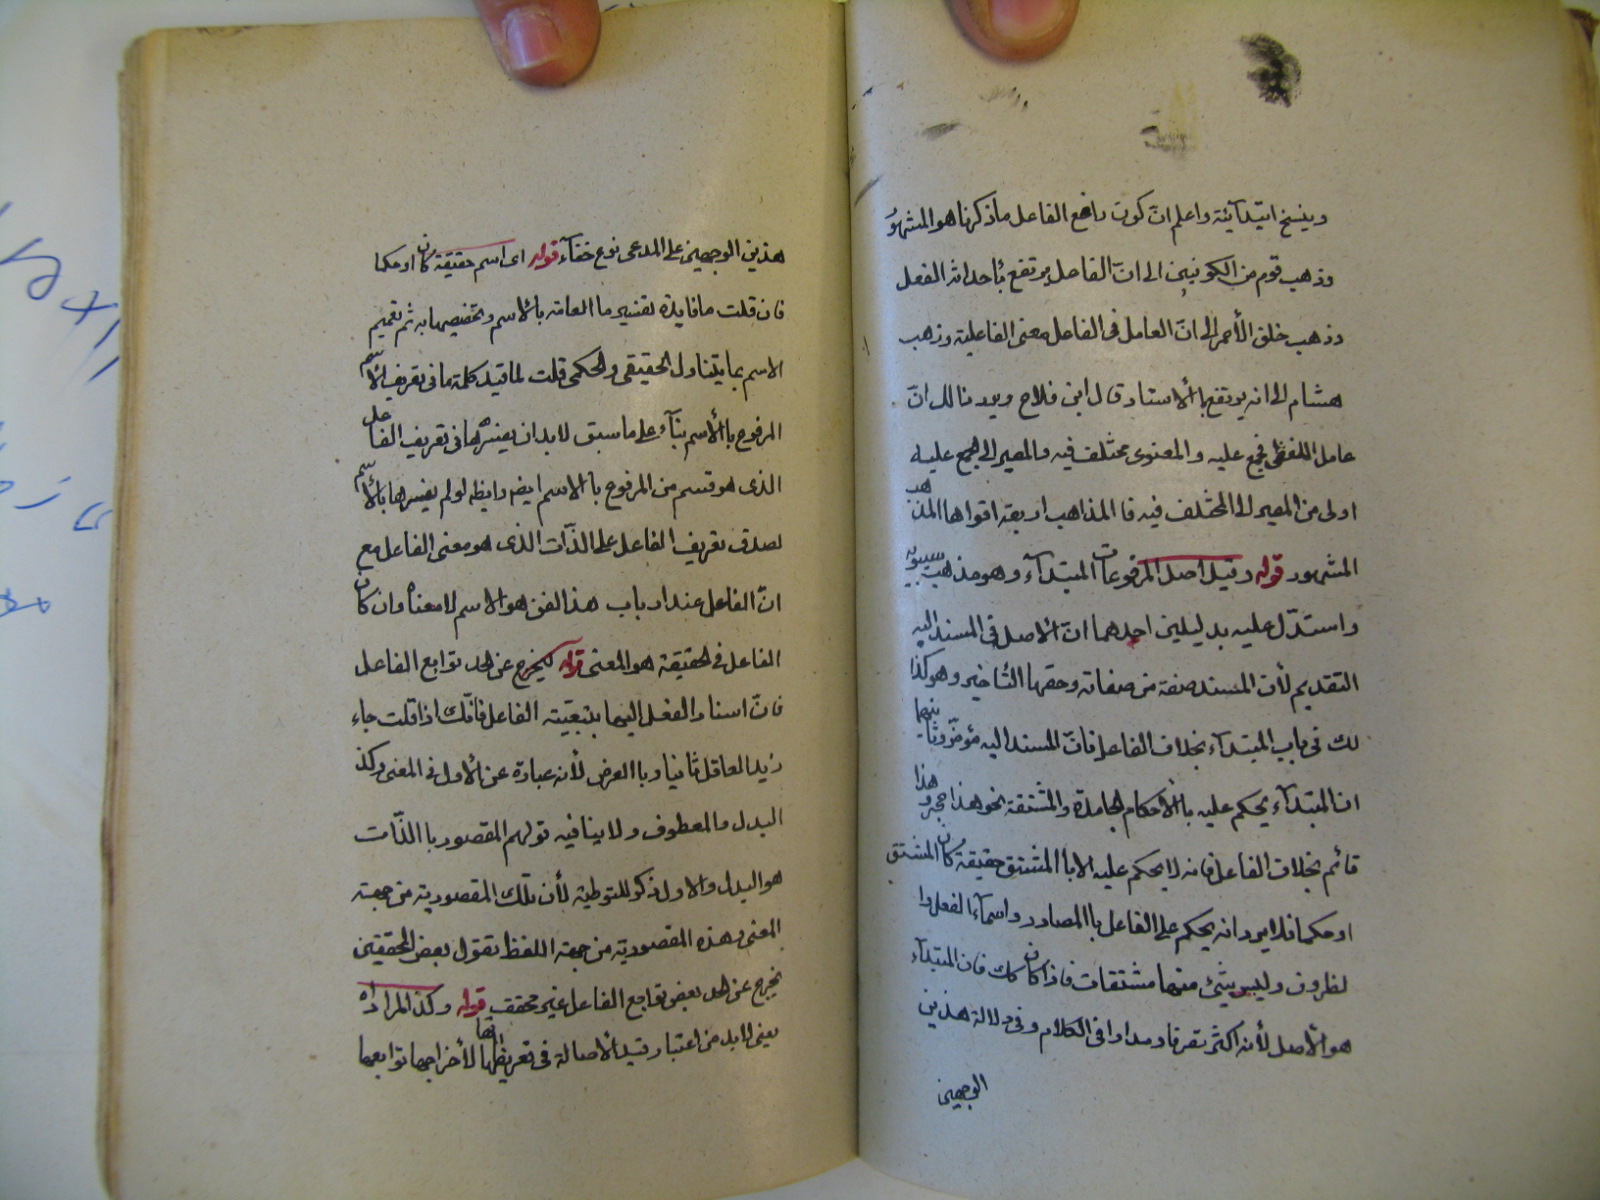 وينسخ ابتدائية واعلم انّ كون رافع الفاعل ما ذكرنا هو المشهور
وذهب قوم من الكوفيين الى انّ الفاعل يرتفع بأحداثه الفعل
وذهب خلف الأحمر الى انّ العامل فى الفاعل معنى الفاعلية وذهب
هشام الى انه يرتفع بالأسناد قال ابن فلاح ويرد نا لك انّ
عامل اللفظى مجمع عليه والمعنوى مختلف فيه والمصير الى مجمع عليه
اولى من المصير الى المختلف فيه فا المذاهب اربعة اقواها المذهب
المشهور قوله وقيل اصل المرفوعات المبتدآء وهو مذهب سيبويه
واستدّل عليه بدليلين احدهما انّ الاصل فى المسند اليه
التقديم لأن المسند صفة من صفاته وحقها التأخير وهو كذا
لك فى باب المبتدآء بخلاف الفاعل فانّ المسند اليه مؤخّر وثانيهما
ان المبتدآء يحكم عليه بالأحكام الجامدة والمشتقة نحو هذا حجر وهذا
قائم بخلاف الفاعل فانه لا يحكم عليه الا با المشتق حقيقة كان المشتق
او حكما فلا يرد انه يحكم على الفاعل با المصادر واسمآء الفعل وا
لظروف وليس شئ منها مشتقات فاذا كان كك فان المبتدآء
هو الأصل لأنه اكثر تصرفا ومدارا فى الكلام وفى دلالة هذين
الوجهين
هذين الوجهين على المدعى نوع خفآء قوله اى اسم حقيقة كان او حكما
فان قلت ما فايدة تفسير ما العامة بالأسم وتخصيصها به ثم تعميم
الاسم بما يتناول الحقيقى والحكمى قلت لما قيد كلمة ما فى تعريف الأسم
المرفوع با الأسم بنآء على ما سبق لابد ان يفسرها فى تعريف الفاعل
الذى هو قسم من المرفوع با الاسم ايضا وايضا لو لم يفسرها بالأسم
لصدق تعريف الفاعل على الذّات الذى هو معنى الفاعل مع
انّ الفاعل عند ارباب هذا الفن هو الاسم لا معناه وان كان
الفاعل فى الحقيقة هو المعنى قوله ليخرج عن الحد توابع الفاعل
فانّ اسناد الفعل اليها بتبعيّته الفاعل فانّك اذا قلت جاء
زيد العاقل ثانيا وبا العرض لأنه عبارة عن الأول فى المعنى وكذ
البدل والمعطوف ولا ينافيه قولهم المقصود با الذّات
هو البدل والاول ذكر للتوطية لأن تلك المقصودية من جهته
المعنى وهذه المقصودية من جهة اللفظ تقول بعض المحققين
يخرج عن الحد بعض توابع الفاعل غير محقق قوله وكذ المراد اه
يعنى لابد من اعتبار قيد الأصالة فى تعريفاتها لأخراجها توابعها